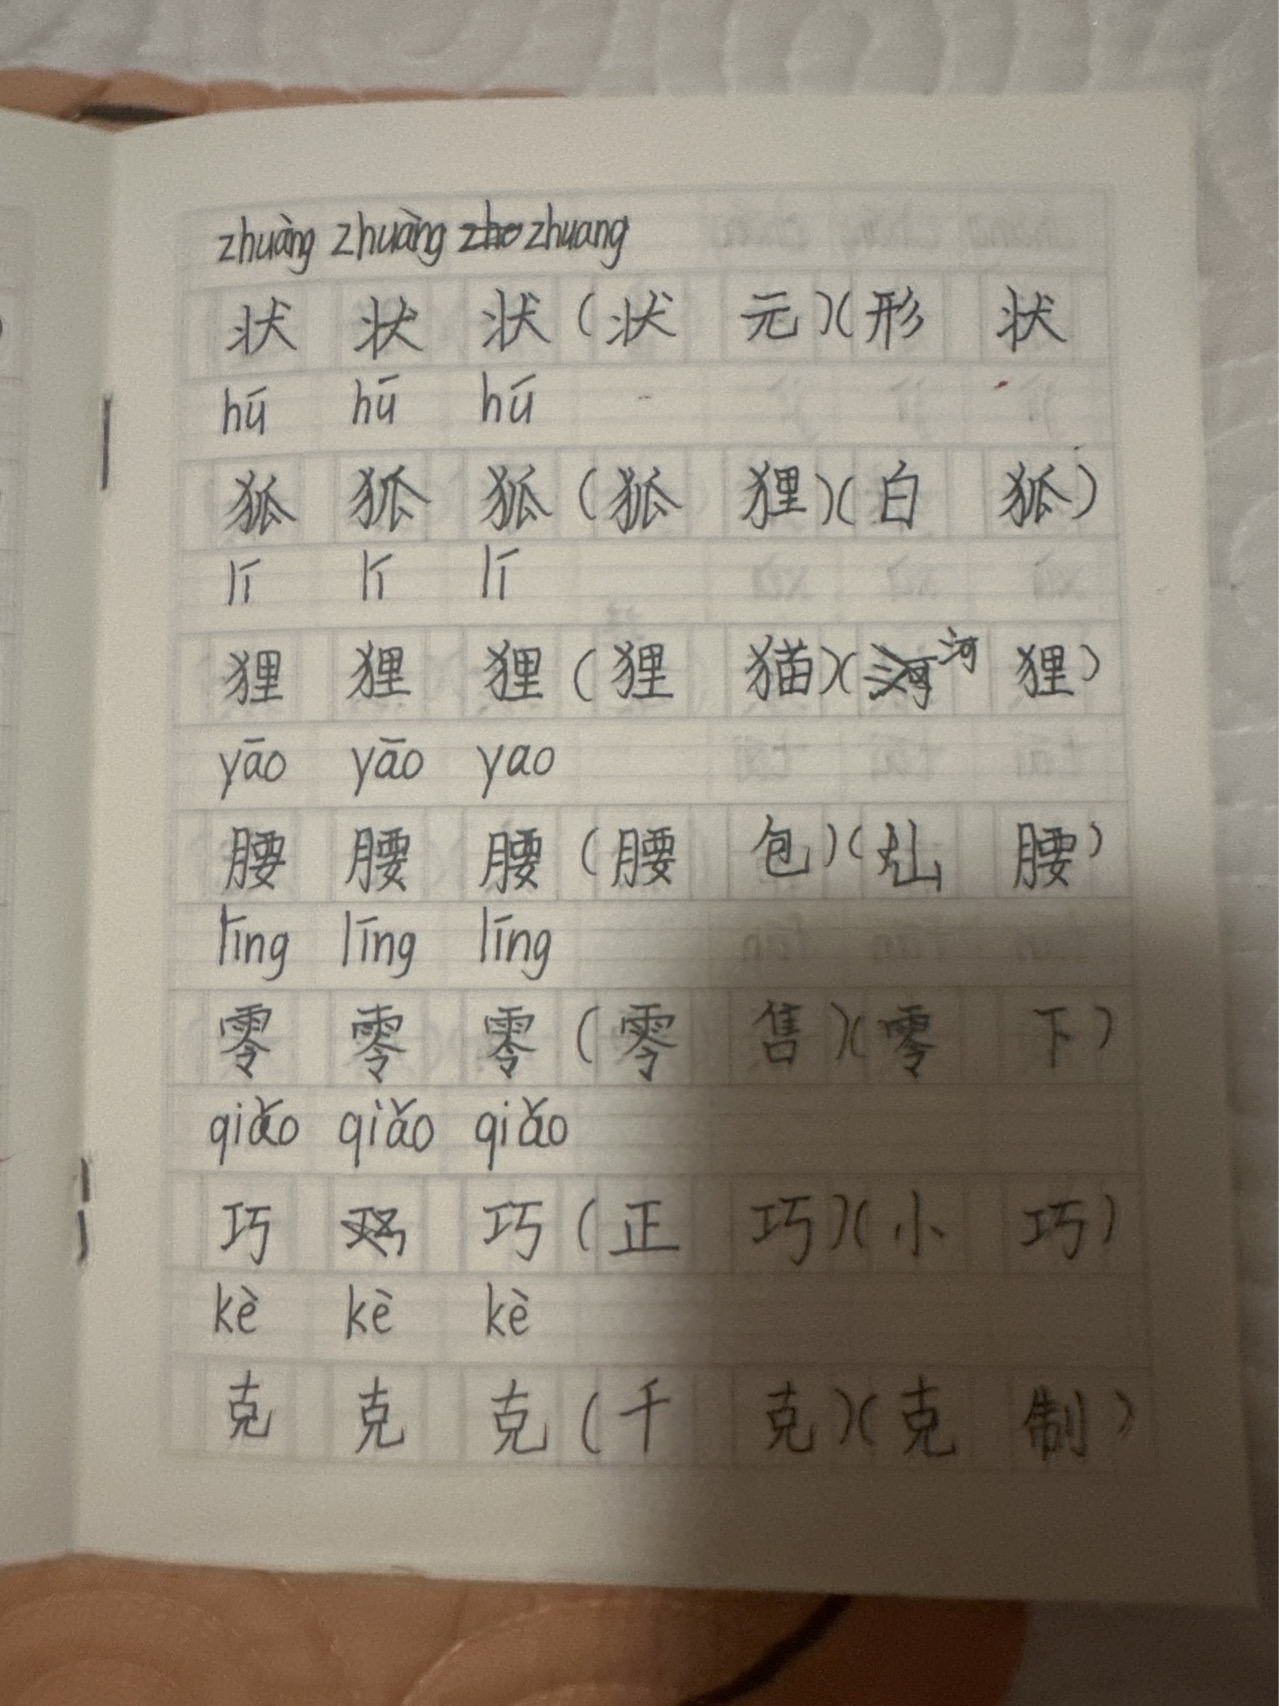 zhuàng zhuàng zhuang
状 状 状 (状 元)(形 状
hú hú hú
狐 狐 狐 (狐 狸)(白 狐)
lí lí lí
狸 狸 狸 (狸 猫)(河 狸)
yāo yāo yao
腰 腰 腰 (腰 包)(山 腰)
líng líng líng
零 零 零 (零 售)(零 下)
qiǎo qiǎo qiǎo
巧 巧 巧 (正 巧)(小 巧)
kè kè kè
克 克 克 (千 克)(克 制)